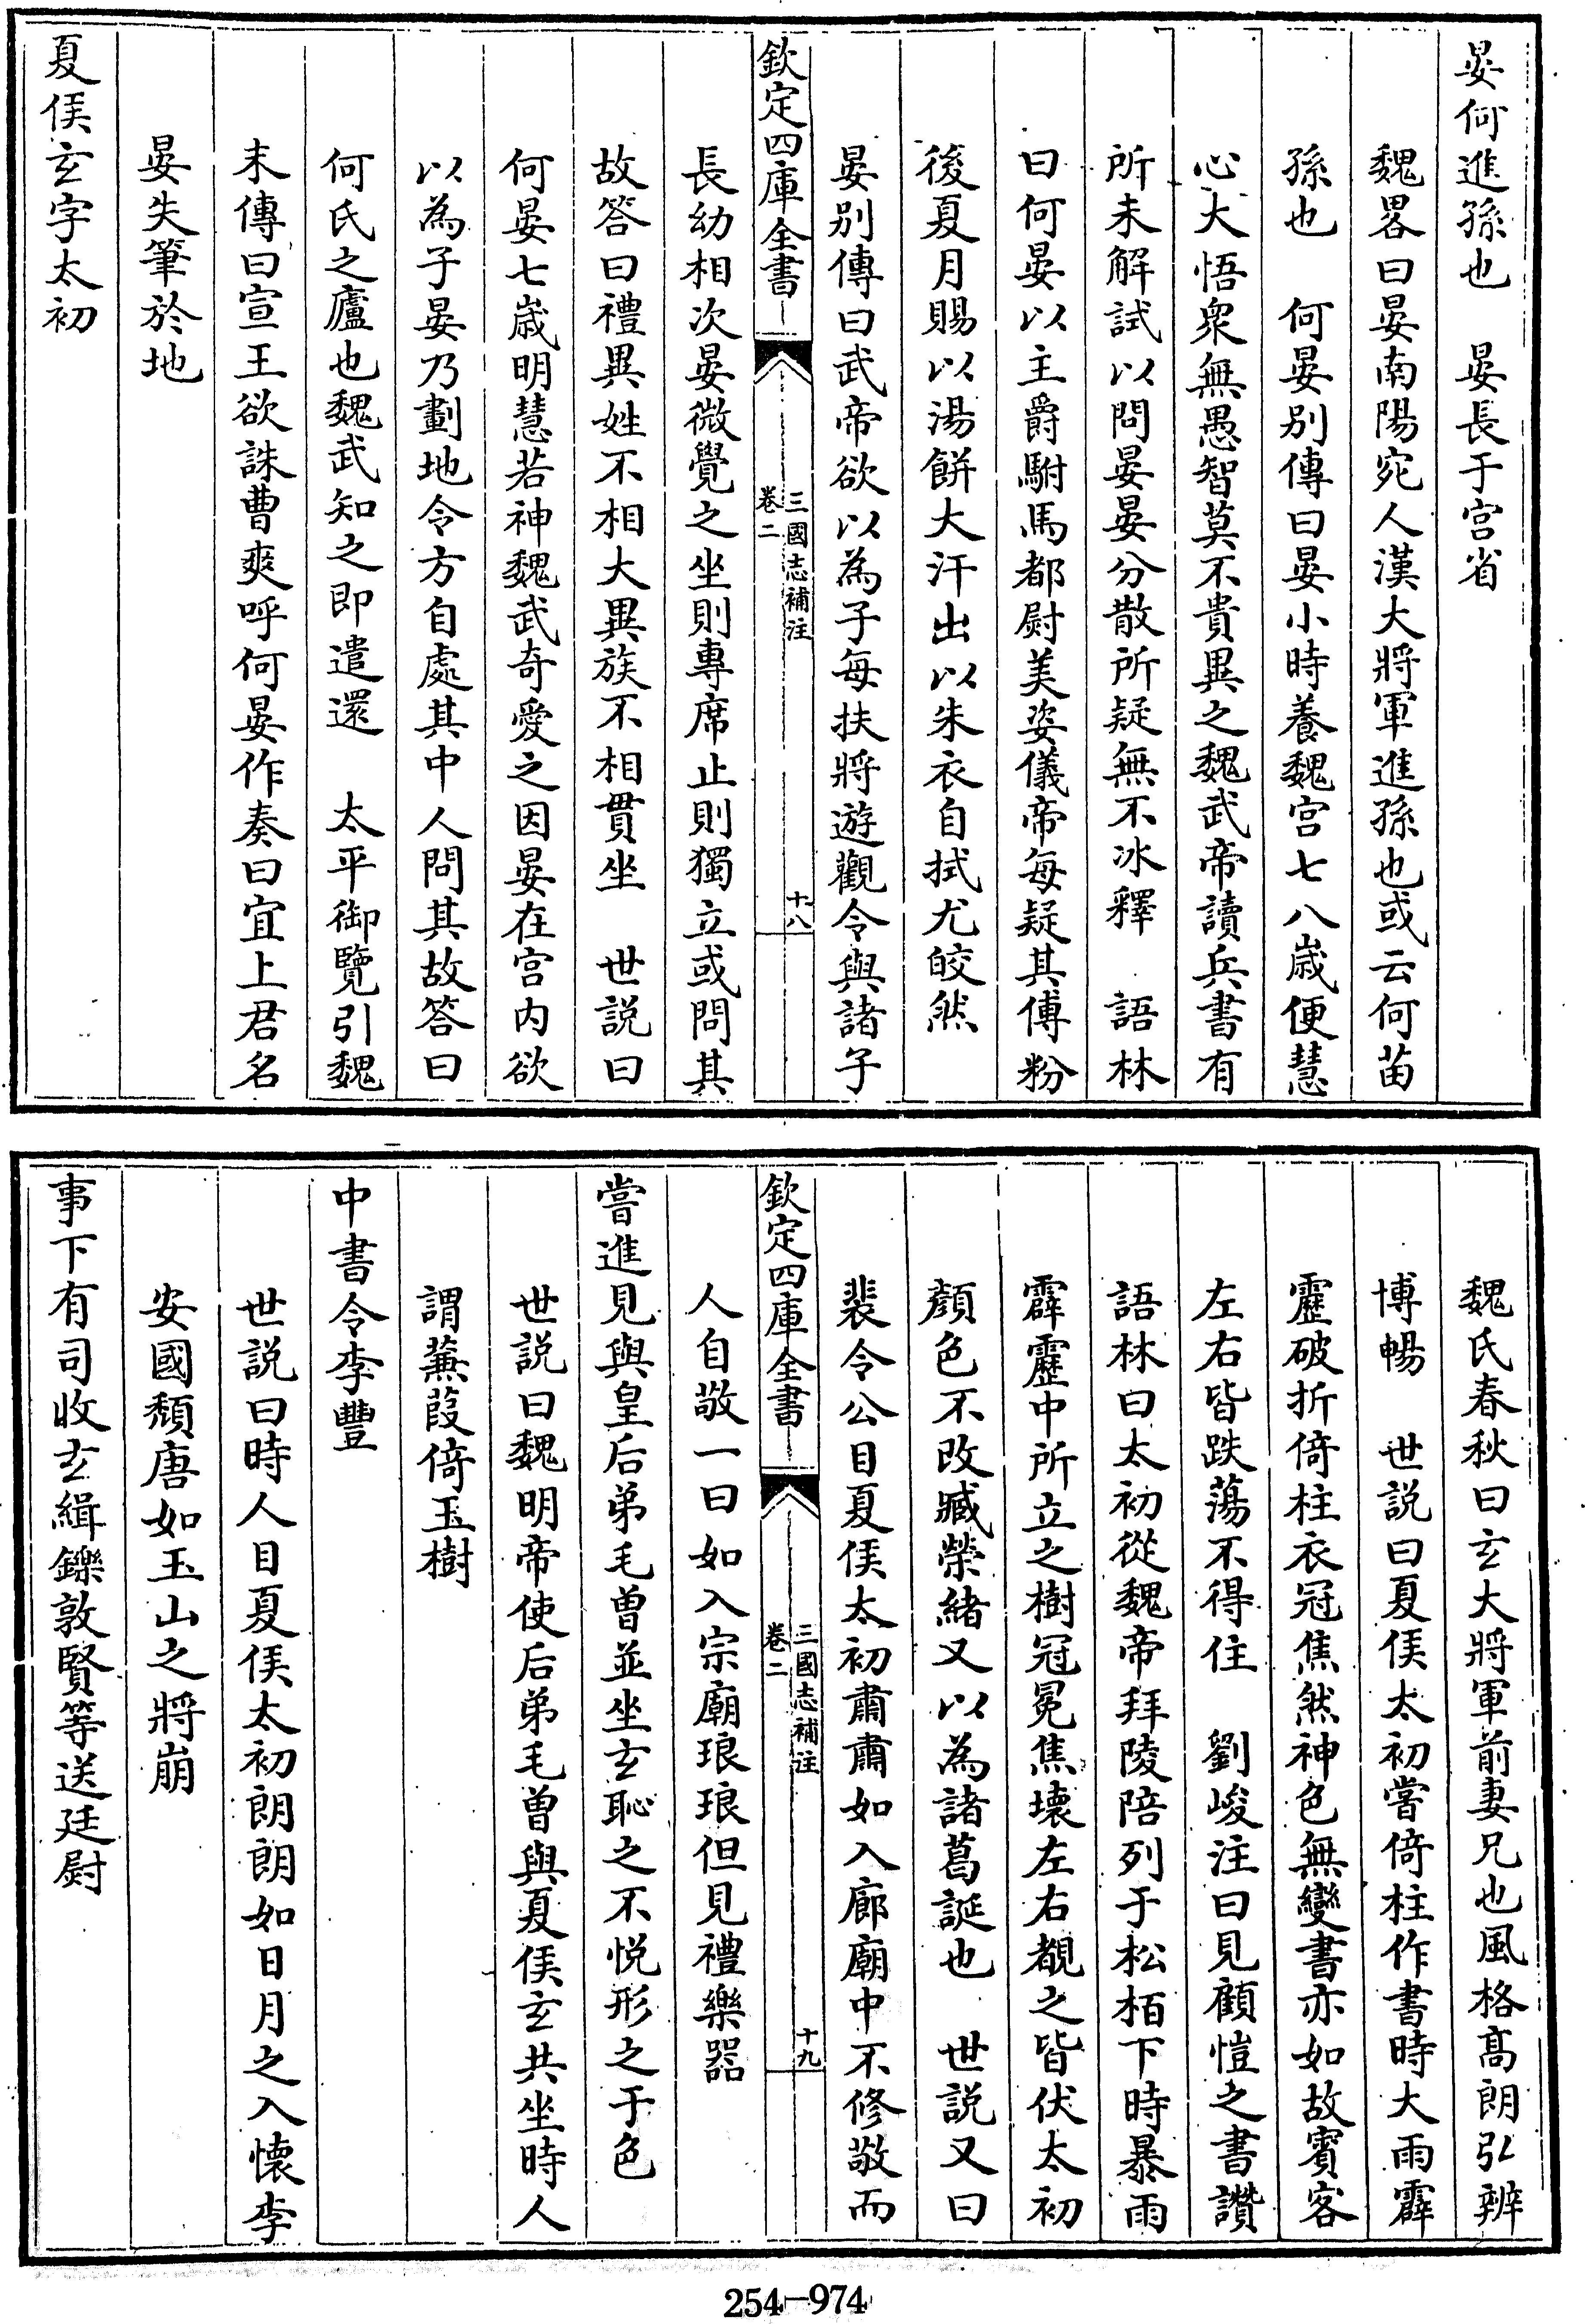 晏何進孫也　晏長于宫省
魏畧曰晏南陽宛人漢大將軍進孫也或云何苗
孫也　何晏别傳曰晏小時養魏宫七八歲便慧
心大悟衆無愚智莫不貴異之魏武帝讀兵書有
所未解試以問晏晏分散所疑無不冰釋　語林
曰何晏以主爵駙馬都尉美姿儀帝每疑其傅粉
後夏月賜以湯餅大汗出以朱衣自拭尤皎然
晏别傳曰武帝欲以為子每扶將遊觀令與諸子
欽定四庫全書
三國志補注
卷二
十八
長幼相次晏微覺之坐則專席止則獨立或問其
故答曰禮異姓不相大異族不相貫坐　世説曰
何晏七歲明慧若神魏武奇愛之因晏在宫内欲
以為子晏乃劃地令方自處其中人問其故答曰
何氏之廬也魏武知之即遣還　太平御覽引魏
末傳曰宣王欲誅曹爽呼何晏作奏曰宜上君名
晏失筆於地
夏侯玄字太初
魏氏春秋曰玄大將軍前妻兄也風格髙朗弘辨
博暢　世説曰夏侯太初嘗倚柱作書時大雨霹
靂破折倚柱衣冠焦然神色無變書亦如故賓客
左右皆跌蕩不得住　劉峻注曰見顧愷之書讚
語林曰太初從魏帝拜陵陪列于松栢下時暴雨
霹靂中所立之樹冠冕焦壞左右覩之皆伏太初
顔色不改臧榮緒又以為諸葛誕也　世説又曰
裴令公目夏侯太初肅肅如入廊廟中不修敬而
欽定四庫全書
三國志補注
卷二
十九
人自敬一曰如入宗廟琅琅但見禮樂器
嘗進見與皇后弟毛曽並坐玄恥之不悦形之于色
世説曰魏明帝使后弟毛曽與夏侯玄共坐時人
謂蒹葭倚玉樹
中書令李豐
世説曰時人目夏侯太初朗朗如日月之入懐李
安國頽唐如玉山之將崩
事下有司收玄緝鑠敦賢等送廷尉
254-974